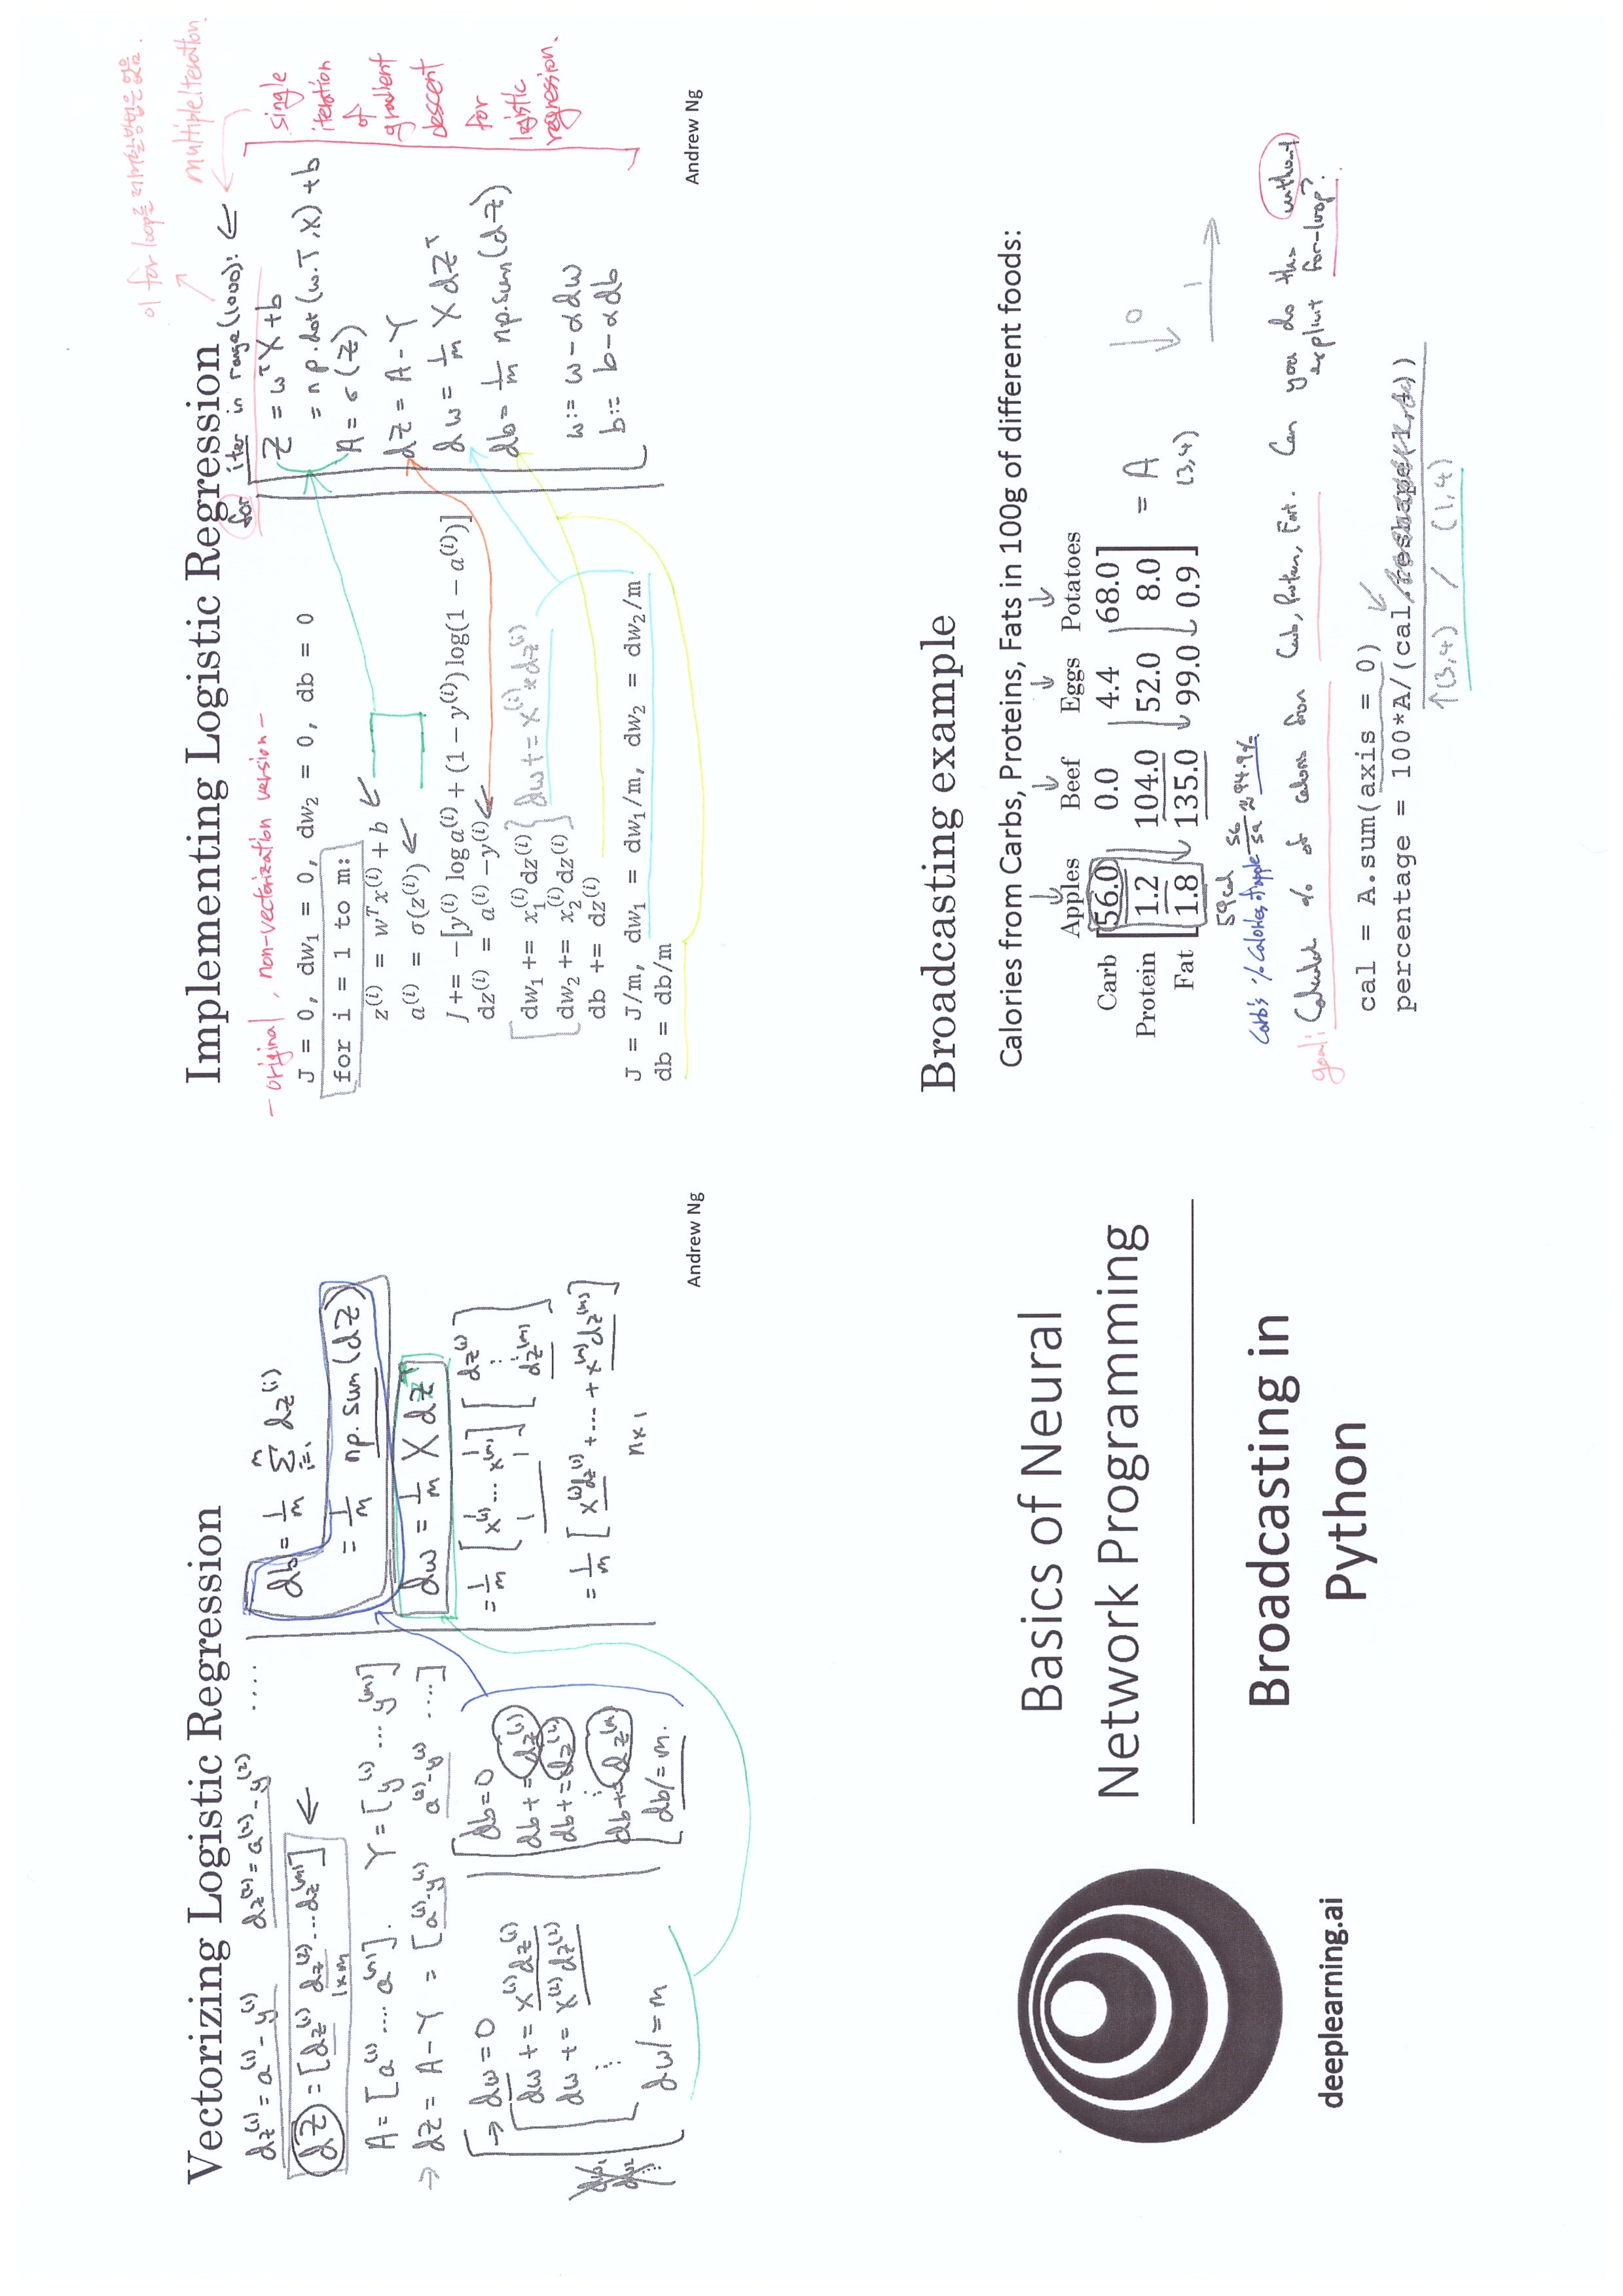 Vectorizing Logistic Regression
dz⁽¹⁾ = a⁽¹⁾ - y⁽¹⁾   dz⁽²⁾ = a⁽²⁾ - y⁽²⁾ ....
dZ = [dz⁽¹⁾ dz⁽²⁾ ... dz⁽ᵐ⁾] ←
1×m
A = [a⁽¹⁾ .... a⁽ᵐ⁾].   Y = [y⁽¹⁾ ... y⁽ᵐ⁾]
→ dZ = A - Y = [a⁽¹⁾-y⁽¹⁾ a⁽²⁾-y⁽²⁾ ....]
→ dw = 0
dw += x⁽¹⁾dz⁽¹⁾
dw += x⁽²⁾dz⁽²⁾
⋮
dw /= m
dw₁
dw₂
db = 0
db += dz⁽¹⁾
db += dz⁽²⁾
⋮
db += dz⁽ᵐ⁾
db /= m.
db = 1/m Σᵢ₌₁ᵐ dz⁽ⁱ⁾
= 1/m np.sum(dZ)
dw = 1/m X dZᵀ
= 1/m [x⁽¹⁾ ... x⁽ᵐ⁾] [dz⁽¹⁾ ⋮ dz⁽ᵐ⁾]
= 1/m [x⁽¹⁾dz⁽¹⁾ + ... + x⁽ᵐ⁾dz⁽ᵐ⁾]
n×1
Andrew Ng
이 for loop를 제거할 방법은 없음.
multiple iteration
Implementing Logistic Regression
- original, non-vectorization version -
J = 0, dw₁ = 0, dw₂ = 0, db = 0
for i = 1 to m:
z⁽ⁱ⁾ = wᵀx⁽ⁱ⁾ + b ←
a⁽ⁱ⁾ = σ(z⁽ⁱ⁾) ←
J += -[y⁽ⁱ⁾ log a⁽ⁱ⁾ + (1 - y⁽ⁱ⁾) log(1 - a⁽ⁱ⁾)]
dz⁽ⁱ⁾ = a⁽ⁱ⁾ - y⁽ⁱ⁾ ←
dw₁ += x₁⁽ⁱ⁾dz⁽ⁱ⁾
dw₂ += x₂⁽ⁱ⁾dz⁽ⁱ⁾
dw += x⁽ⁱ⁾ * dz⁽ⁱ⁾
db += dz⁽ⁱ⁾
J = J/m, dw₁ = dw₁/m, dw₂ = dw₂/m
db = db/m
for iter in range(1000): ←
Z = wᵀX + b
= np.dot(w.T, X) + b
A = σ(Z)
dZ = A - Y
dw = 1/m X dZᵀ
db = 1/m np.sum(dZ)
w := w - αdw
b := b - αdb
single
iteration
of
gradient
descent
for
logistic
regression.
Andrew Ng
deeplearning.ai
Basics of Neural
Network Programming
Broadcasting in
Python
Broadcasting example
Calories from Carbs, Proteins, Fats in 100g of different foods:
Apples Beef Eggs Potatoes
Carb 56.0 0.0 4.4 68.0
Protein 1.2 104.0 52.0 8.0
Fat 1.8 135.0 99.0 0.9
= A
(3,4)
0
1
59cal
Carb's % calories of apple 56/59 ≈ 94.9%
goal: Calculate % of calories from Carb, Protein, Fat. Can you do this without
explicit for-loop?
cal = A.sum(axis = 0)
percentage = 100*A/(cal.reshape(1,4))
↑(3,4) / (1,4)